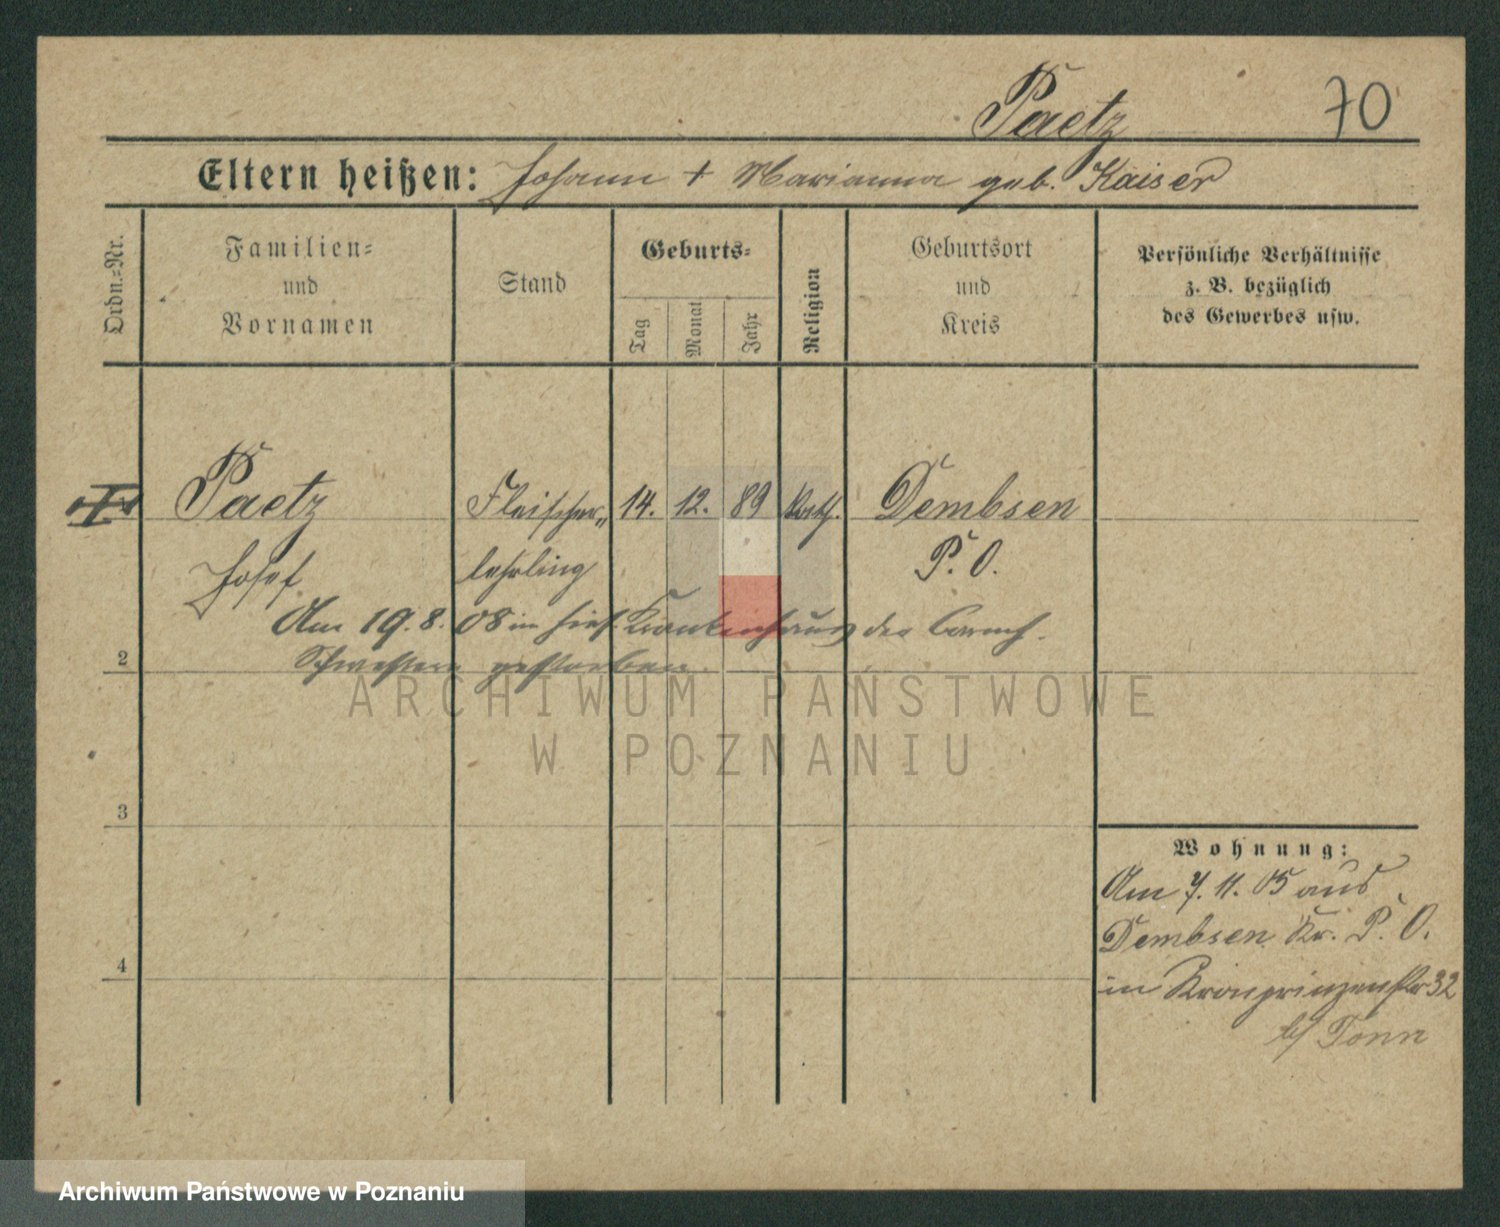 Paetz 70
Eltern heißen: Johann + Marianna geb. Kaiser
Ordn.=Nr.
Familien=
und
Vornamen
Stand
Geburts=
Tag
Monat
Jahr
Religion
Geburtsort
und
Kreis
Persönliche Verhältnisse
z. B. bezüglich
des Gewerbes usw.
Paetz Fleischer„ 14. 12. 89 kath. Dembsen
Josef lehrling P. O.
Am 19. 8. 08 in hies. Krankenhaus der barmh.
2 Schwestern gestorben.
3
4
Wohnung:
Am 7. 11. 05 aus
Dembsen Kr. P. O.
in Kronprinzenstr 32
b/ Tonn
ARCHIWUM PAŃSTWOWE
W POZNANIU
Archiwum Państwowe w Poznaniu